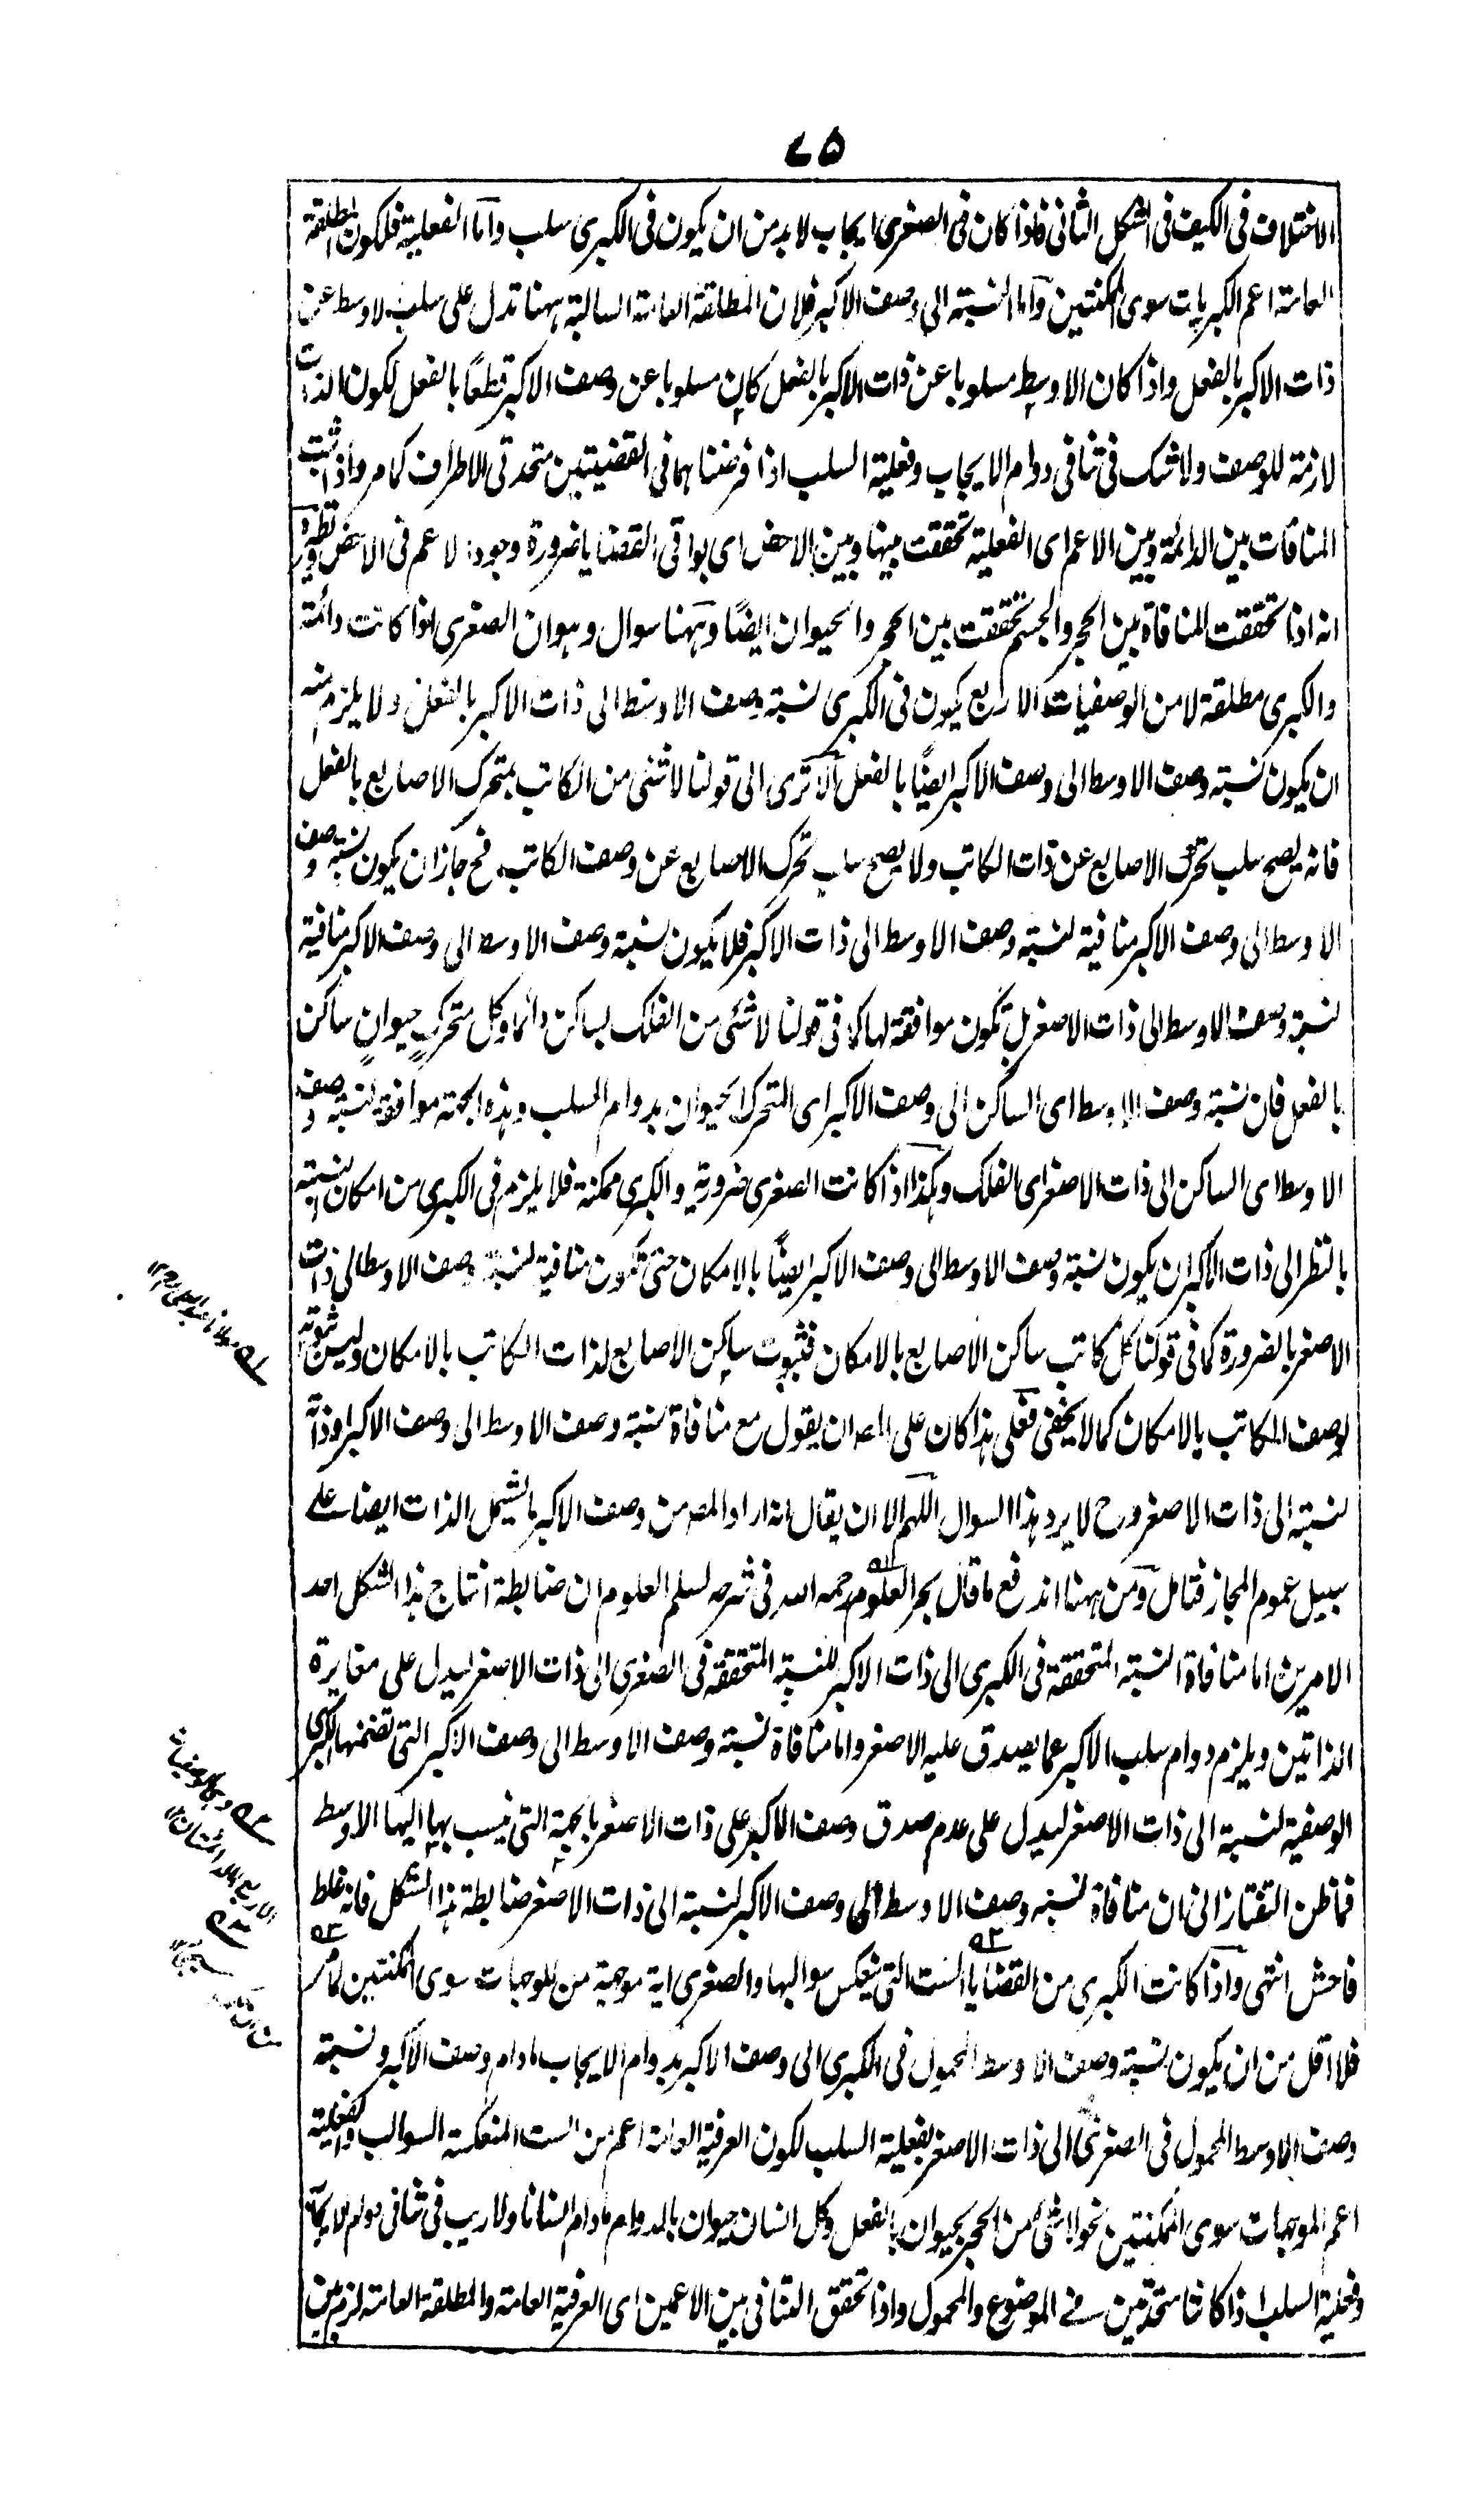 ٧٥
الاختلاف فى الكيف فى الشكل الثانى فاذا كان فى الصغرى ايجاب لا بد من ان يكون فى الكبرى سلب واما الفعلية فلكون المطلقة
العامة اعم الكبريات سوى الممكنتين واما النسبة الى وصف الاكبر فلان المطلقة العامة السالبة ههنا تدل على سلب الاوسط عن
ذات الاكبر بالفعل واذا كان الاوسط مسلوبا عن ذات الاكبر بالفعل كان مسلوبا عن وصف الاكبر قطعًا بالفعل لكون الذات
لازمة للوصف ولا شك فى تنافى دوام الايجاب وفعلية السلب اذا فرضناهما فى القضيتين متحدتى الاطراف كما مر واذا ثبت
المنافات بين الدائمة وبين الاعم اى الفعلية تحققت بينها وبين الاخص اى بواقى القضايا ضرورة وجود الاعم فى الاخص ونظيره
انه اذا تحققت المنافاة بين الحجر والجسم تحققت بين الحجر والحيوان ايضًا وههنا سوال وهو ان الصغرى اذا كانت دائمة
والكبرى مطلقة لا من الوصفيات الاربع يكون فى الكبرى نسبة وصف الاوسط الى ذات الاكبر بالفعل ولا يلزم منه
ان يكون نسبة وصف الاوسط الى وصف الاكبر ايضًا بالفعل الا ترى الى قولنا لا شئ من الكاتب بمتحرك الاصابع بالفعل
فانه يصح سلب تحرك الاصابع عن ذات الكاتب ولا يصح سلب تحرك الاصابع عن وصف الكاتب فح جاز ان يكون نسبة وصف
الاوسط الى وصف الاكبر منافية لنسبة وصف الاوسط الى ذات الاكبر فلا يكون نسبة وصف الاوسط الى وصف الاكبر منافية
لنسبة وصف الاوسط الى ذات الاصغر بل تكون موافقة لها كما فى قولنا لا شئ من الفلك بساكن دائما وكل متحرك حيوان ساكن
بالفعل فان نسبة وصف الاوسط اى الساكن الى وصف الاكبر اى المتحرك الحيوان بدوام السلب وهذه الجهة موافقة لنسبة وصف
الاوسط اى الساكن الى ذات الاصغر اى الفلك وهكذا اذا كانت الصغرى ضرورية والكبرى ممكنة فلا يلزم فى الكبرى من امكان نسبته
بالنظر الى ذات الاكبر ان يكون نسبة وصف الاوسط الى وصف الاكبر ايضًا بالامكان حتى تكون منافية لنسبة وصف الاوسط الى ذات
الاصغر بالضرورة كما فى قولنا كل كاتب ساكن الاصابع بالامكان فثبوت ساكن الاصابع لذات الكاتب بالامكان وليس ثبوته
لوصف الكاتب بالامكان كما لا يخفى فعلى هذا كان على المص ان يقول مع منافاة نسبة وصف الاوسط الى وصف الاكبر او ذاته
لنسبته الى ذات الاصغر وح لا يرد هذا السوال اللهم الا ان يقال انه اراد المص من وصف الاكبر ما يشمل الذات ايضا على
سبيل عموم المجاز فتامل ومن ههنا اندفع ما قال بحر العلوم رحمه الله فى شرحه لسلم العلوم ان ضابطة انتاج هذا الشكل احد
الامرين اما منافاة النسبة المتحققة فى الكبرى الى ذات الاكبر للنسبة المتحققة فى الصغرى الى ذات الاصغر ليدل على مغايرة
الذاتين ويلزم دوام سلب الاكبر عما يصدق عليه الاصغر واما منافاة نسبة وصف الاوسط الى وصف الاكبر التى تضمنها الكبرى
الوصفية لنسبته الى ذات الاصغر ليدل على عدم صدق وصف الاكبر على ذات الاصغر بالجهة التى نسب بها اليها الاوسط
فما ظن التفتازانى ان منافاة نسبة وصف الاوسط الى وصف الاكبر لنسبته الى ذات الاصغر ضابطة هذا الشكل فانه غلط
فاحش انتهى واذا كانت الكبرى من القضايا الست التى ينعكس سوالبها والصغرى اية موجهة من الموجهات سوى الممكنتين كما مر
فلا اقل من ان يكون نسبة وصف الاوسط المحمول فى الكبرى الى وصف الاكبر بدوام الايجاب ما دام وصف الاكبر ونسبة
وصف الاوسط المحمول فى الصغرى الى ذات الاصغر بفعلية السلب لكون العرفية العامة اعم من الست المنعكسة السوالب والفعلية
اعم الموجهات سوى الممكنتين نحو لا شئ من الحجر بحيوان بالفعل وكل انسان حيوان بالدوام ما دام انسانا ولا ريب فى تنافى دوام الايجاب
وفعلية السلب اذا كانتا متحدتين فى الموضوع والمحمول واذا تحقق التنافى بين الاعمين اى العرفية العامة والمطلقة العامة لزم بين